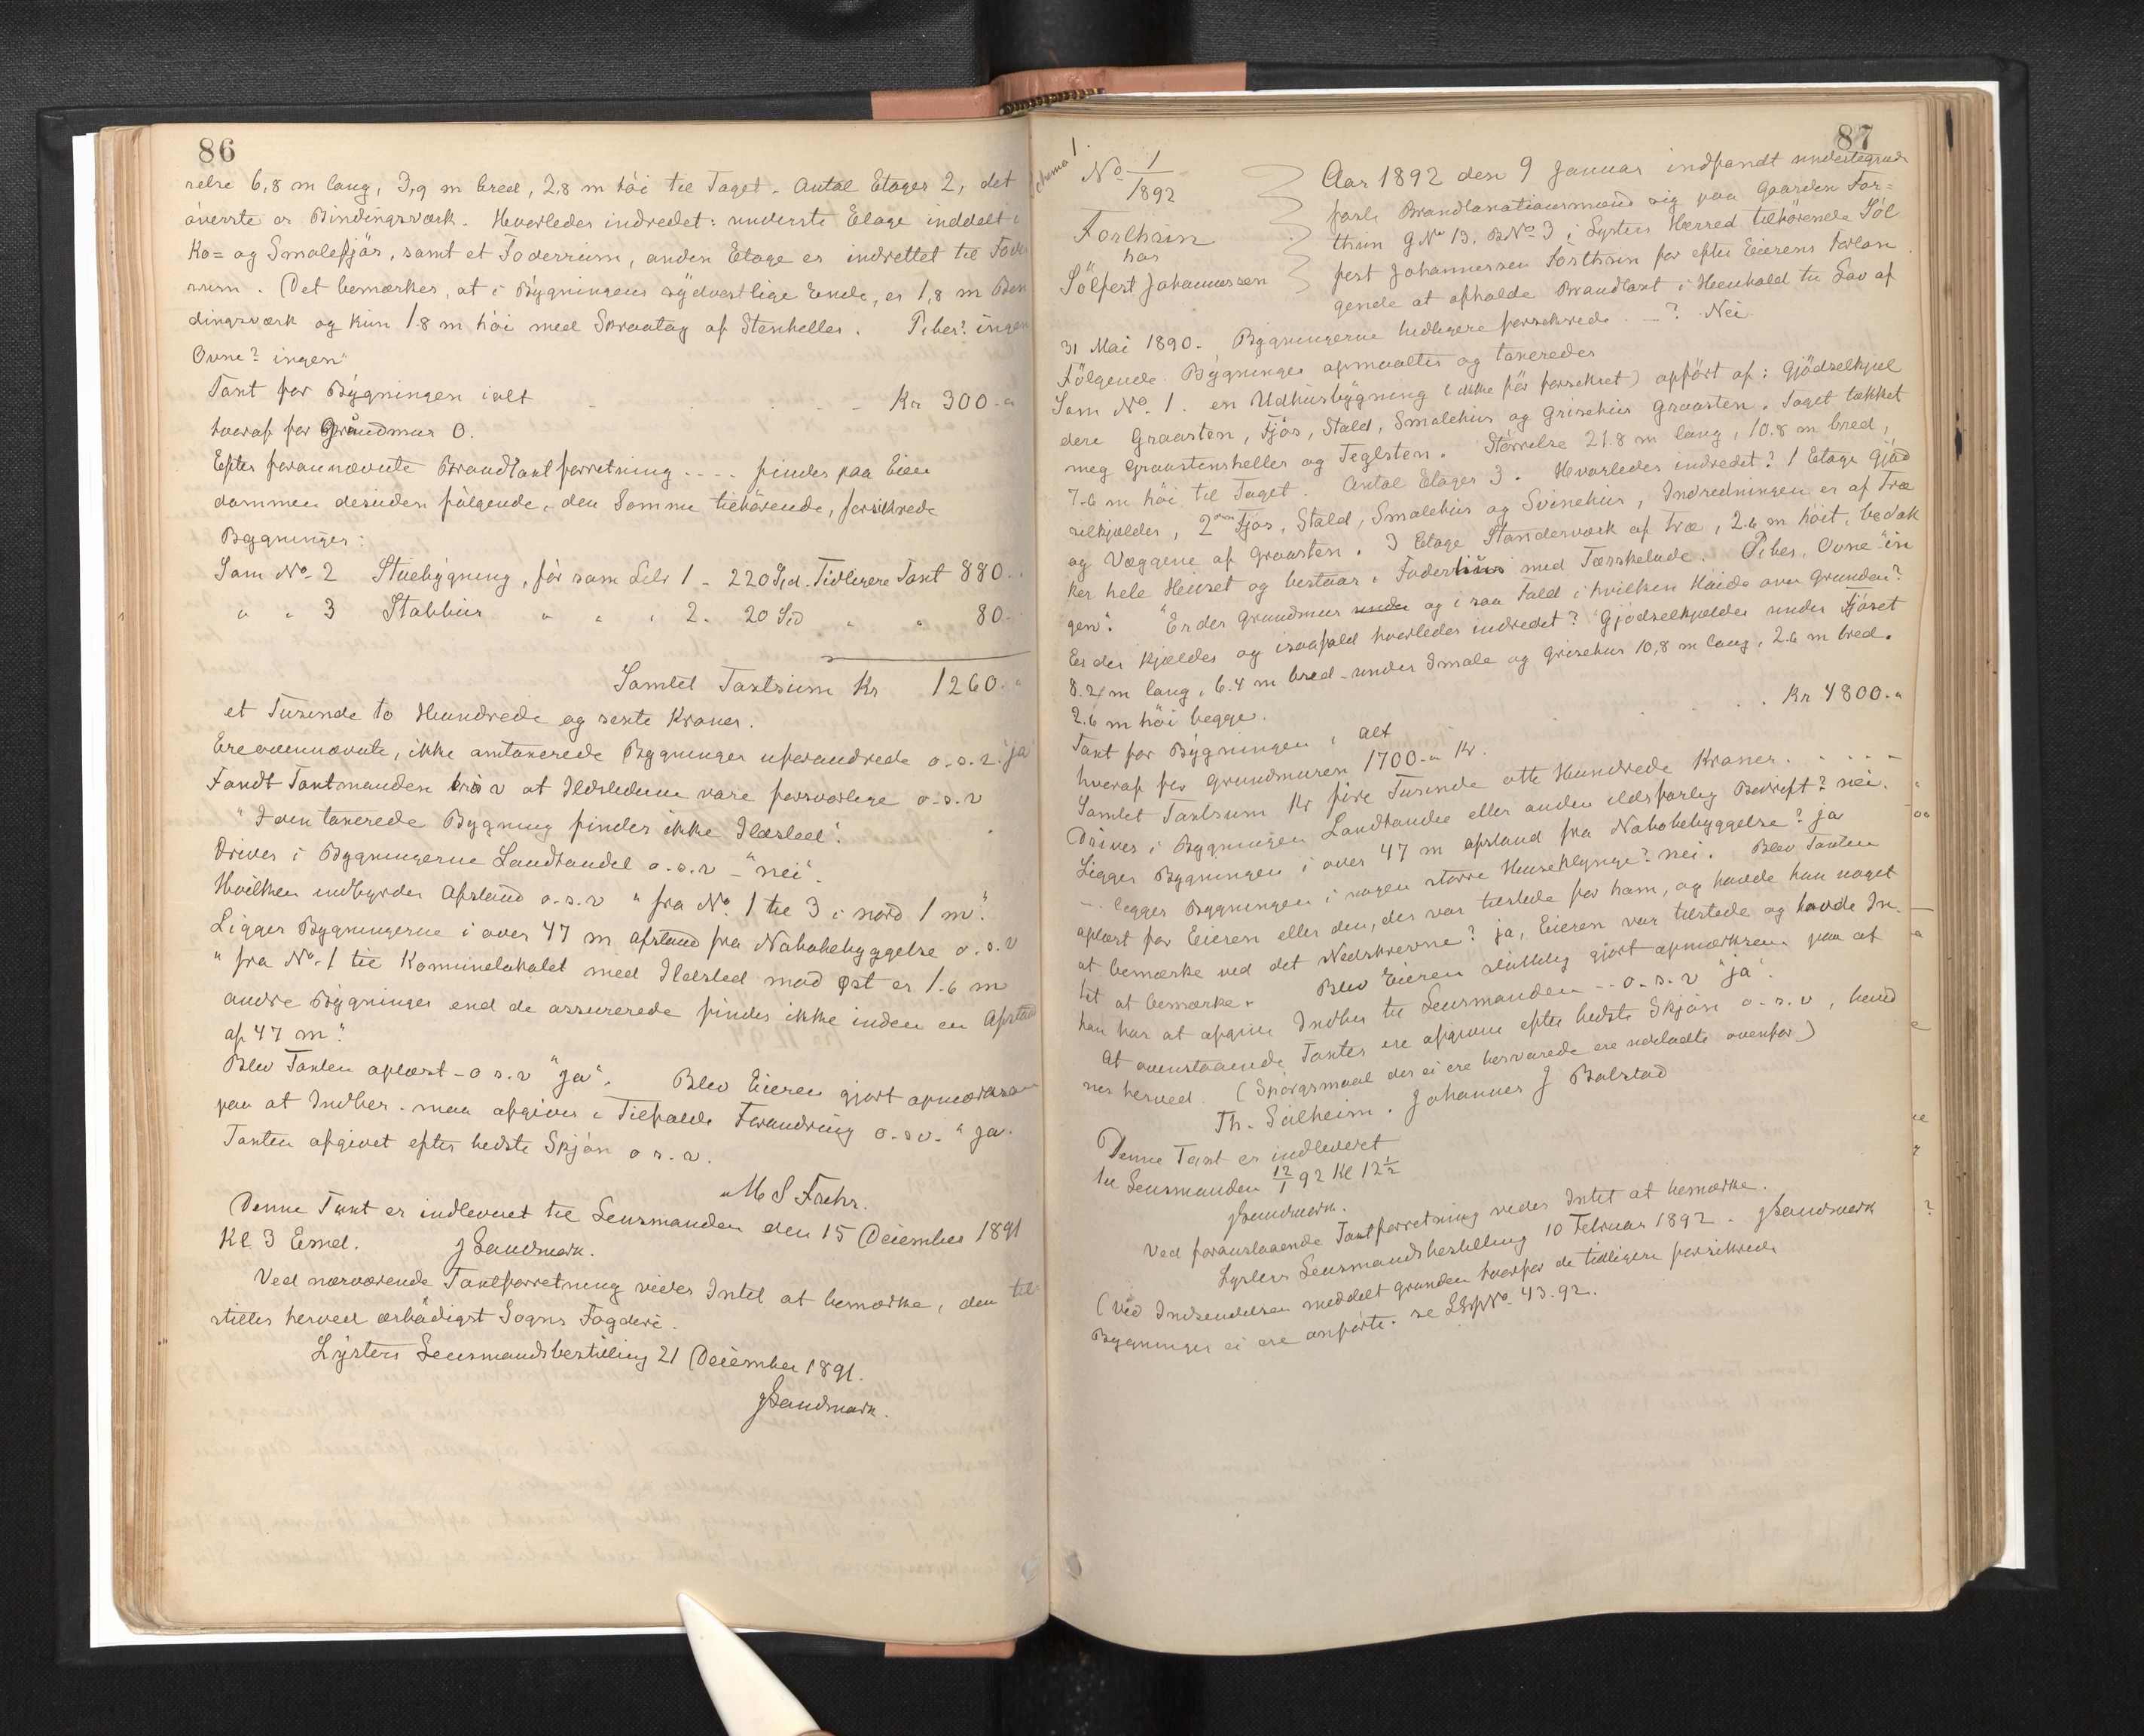 86
relse 6,8 m lang, 3,9 m bred, 2,8 m høi til Taget. Antal Etager 2, det
øverste er Bindingsværk. Hvorledes indredet: underste Etage inddelt i
Ko= og Smalefjøs, samt et Foderrum, anden Etage er indrettet til Foder
rum. Det bemærkes, at i Bygningens sydvestlige Ende, er 1,8 m Bin
dingsværk og kun 1.8 m høi med Skraatag af Stenheller. Piber? ingen
Ovne? ingen"
Taxt for Bygningen ialt - - - Kr 300.
hvoraf for Grundmur 0.
Efter forannævnte Brandtaxtforretning .... findes paa Eien
dommen desuden følgende, den Samme tilhørende, forsikrede
Bygninger:
Som No. 2 Stuebygning, før som Litr 1 - 220 Spd. Tidligere Taxt 880.
" " 3 Stabbur " " " 2. 20 Spd " " 80.
Samlet Taxtsum Kr 1260.
et Tusende to Hundrede og sexti Kroner.
Ere ovennævnte, ikke omtaxerede Bygninger uforandrede o.s.v. "ja
Fandt Taxtmanden at Ildstederne vare forsvarlige o.s.v
"I den taxerede Bygning findes ikke Ildsted".
Drives i Bygningerne Landhandel o.s.v - "nei".
Hvilken indbyrdes Afstand o.s.v " fra No. 1 til 3 i nord 1 m".
Ligger Bygningerne i over 47 m afstand fra Nabobebyggelse o.s.v
" fra No. 1 til Komunelokalet med Ildsted mod øst er 1.6 m
andre Bygninger end de assurerede findes ikke inden en Afstand
af 47 m".
Blev Taxten oplæst - o s.v "ja". Blev Eieren gjort opmærksom
paa at Indber. maa afgives i Tilfælde Forandring o.s.v. " ja.
Taxten afgivet efter bedste Skjøn o s.v.
M S Fuhr.
Denne Taxt er indleveret til Lensmanden den 15 Deiember 1891
Kl 3 Emd. J Sandmark.
Ved nærværende Taxtforretning vides Intet at bemærke, den til
stilles herved ærbødigst Sogns Fogderi.
Lysters Lensmandsbestilling 21 Deiember 1891.
J Sandmark.
87
Schema 1.
No 1/1892
Forthun
hos
Sølfest Johannessen
Aar 1892 den 9 Januar indfandt undertegnede
Brandtaxationsmænd sig paa Gaarden For=
thun GNo 13. BNo 3 i Lysters Herred tilhørende Søl
fest Johannessen Forthun for efter Eierens Forlan
gende at afholde Brandtaxt i Henhold til Lov af
31 Mai 1890. Bygningerne tidligere forsikrede --? Nei
Følgende Bygninger opmaaltes og taxeredes
Som No. 1. en Udhusbygning (ikke før forsikret) opført af: Gjødselkjel
dere Graasten, Fjøs, Stald, Smalehus og Grisehus Graasten. Taget tækket
meg Graastensheller og Teglsten. Størrelse 21.8 m lang, 10.8 m bred,
7.6 m høi til Taget. Antal Etager 3. Hvorledes indredet? 1 Etage Gjød
selkjelder, 2den Fjøs, Stald, Smalehus og Svinehus, Indredningen er af Træ
og Væggene af Graasten. 3 Etage Standerværk af Træ, 2.6 m høit, bedæk
ker hele Huset og bestaar i Foderhus med Tærskelade. Piber, Ovne "in
gen". "Er der Grundmur under og i saa Fald i hvilken Høide over Grunden?
Er der Kjælder og isaafald hvorledes indredet? Gjødselkjelder under Fjøset
8.2 m lang, 6.4 m bred - under Smale og Grisehus 10,8 m lang, 2.6 m bred.
2.6 m høi begge.
Taxt for Bygningen i alt . . . Kr 4800.
hvoraf for Grundmuren 1700 Kr.
Samlet Taxtsum Kr fire Tusende otte Hundrede Kroner. . . .
Drives i Bygningen Landhandel eller anden ildsfarlig Bedrift? nei.
Ligger Bygningen i over 47 m afstand fra Nabobebyggelse? ja
-- ligger Bygningen i nogen større Huseklynge? nei. Blev Taxten
oplæst for Eieren eller den, der var tilstede for ham, og havde han noget
at bemærke ved det Nedskrevne? ja, Eieren var tilstede og havde In-
tet at bemærke. Blev Eieren skriftlig gjort opmærksom paa at
han har at afgive Indber til Lensmanden -- o.s.v "ja".
At ovenstaaende Taxter ere afgivne efter bedste Skjøn o.s.v, bevid
nes herved. (Spørgsmaal der ei ere besvarede ere udeladte ovenfor)
Th. Sølheim. Johannes J Bolstad
Denne Taxt er indleveret
til Lensmanden 12/1 92 Kl 12 1/2
J Sandmark.
Ved foranstaaende Taxtforretning vides Intet at bemærke.
Lysters Lensmandsbestilling 10 Februar 1892. J Sandmark
(Ved Indsendelsen meddelt grunden hvorfor de tidligere forsikrede
Bygninger ei ere anførte. se No. 43.92.